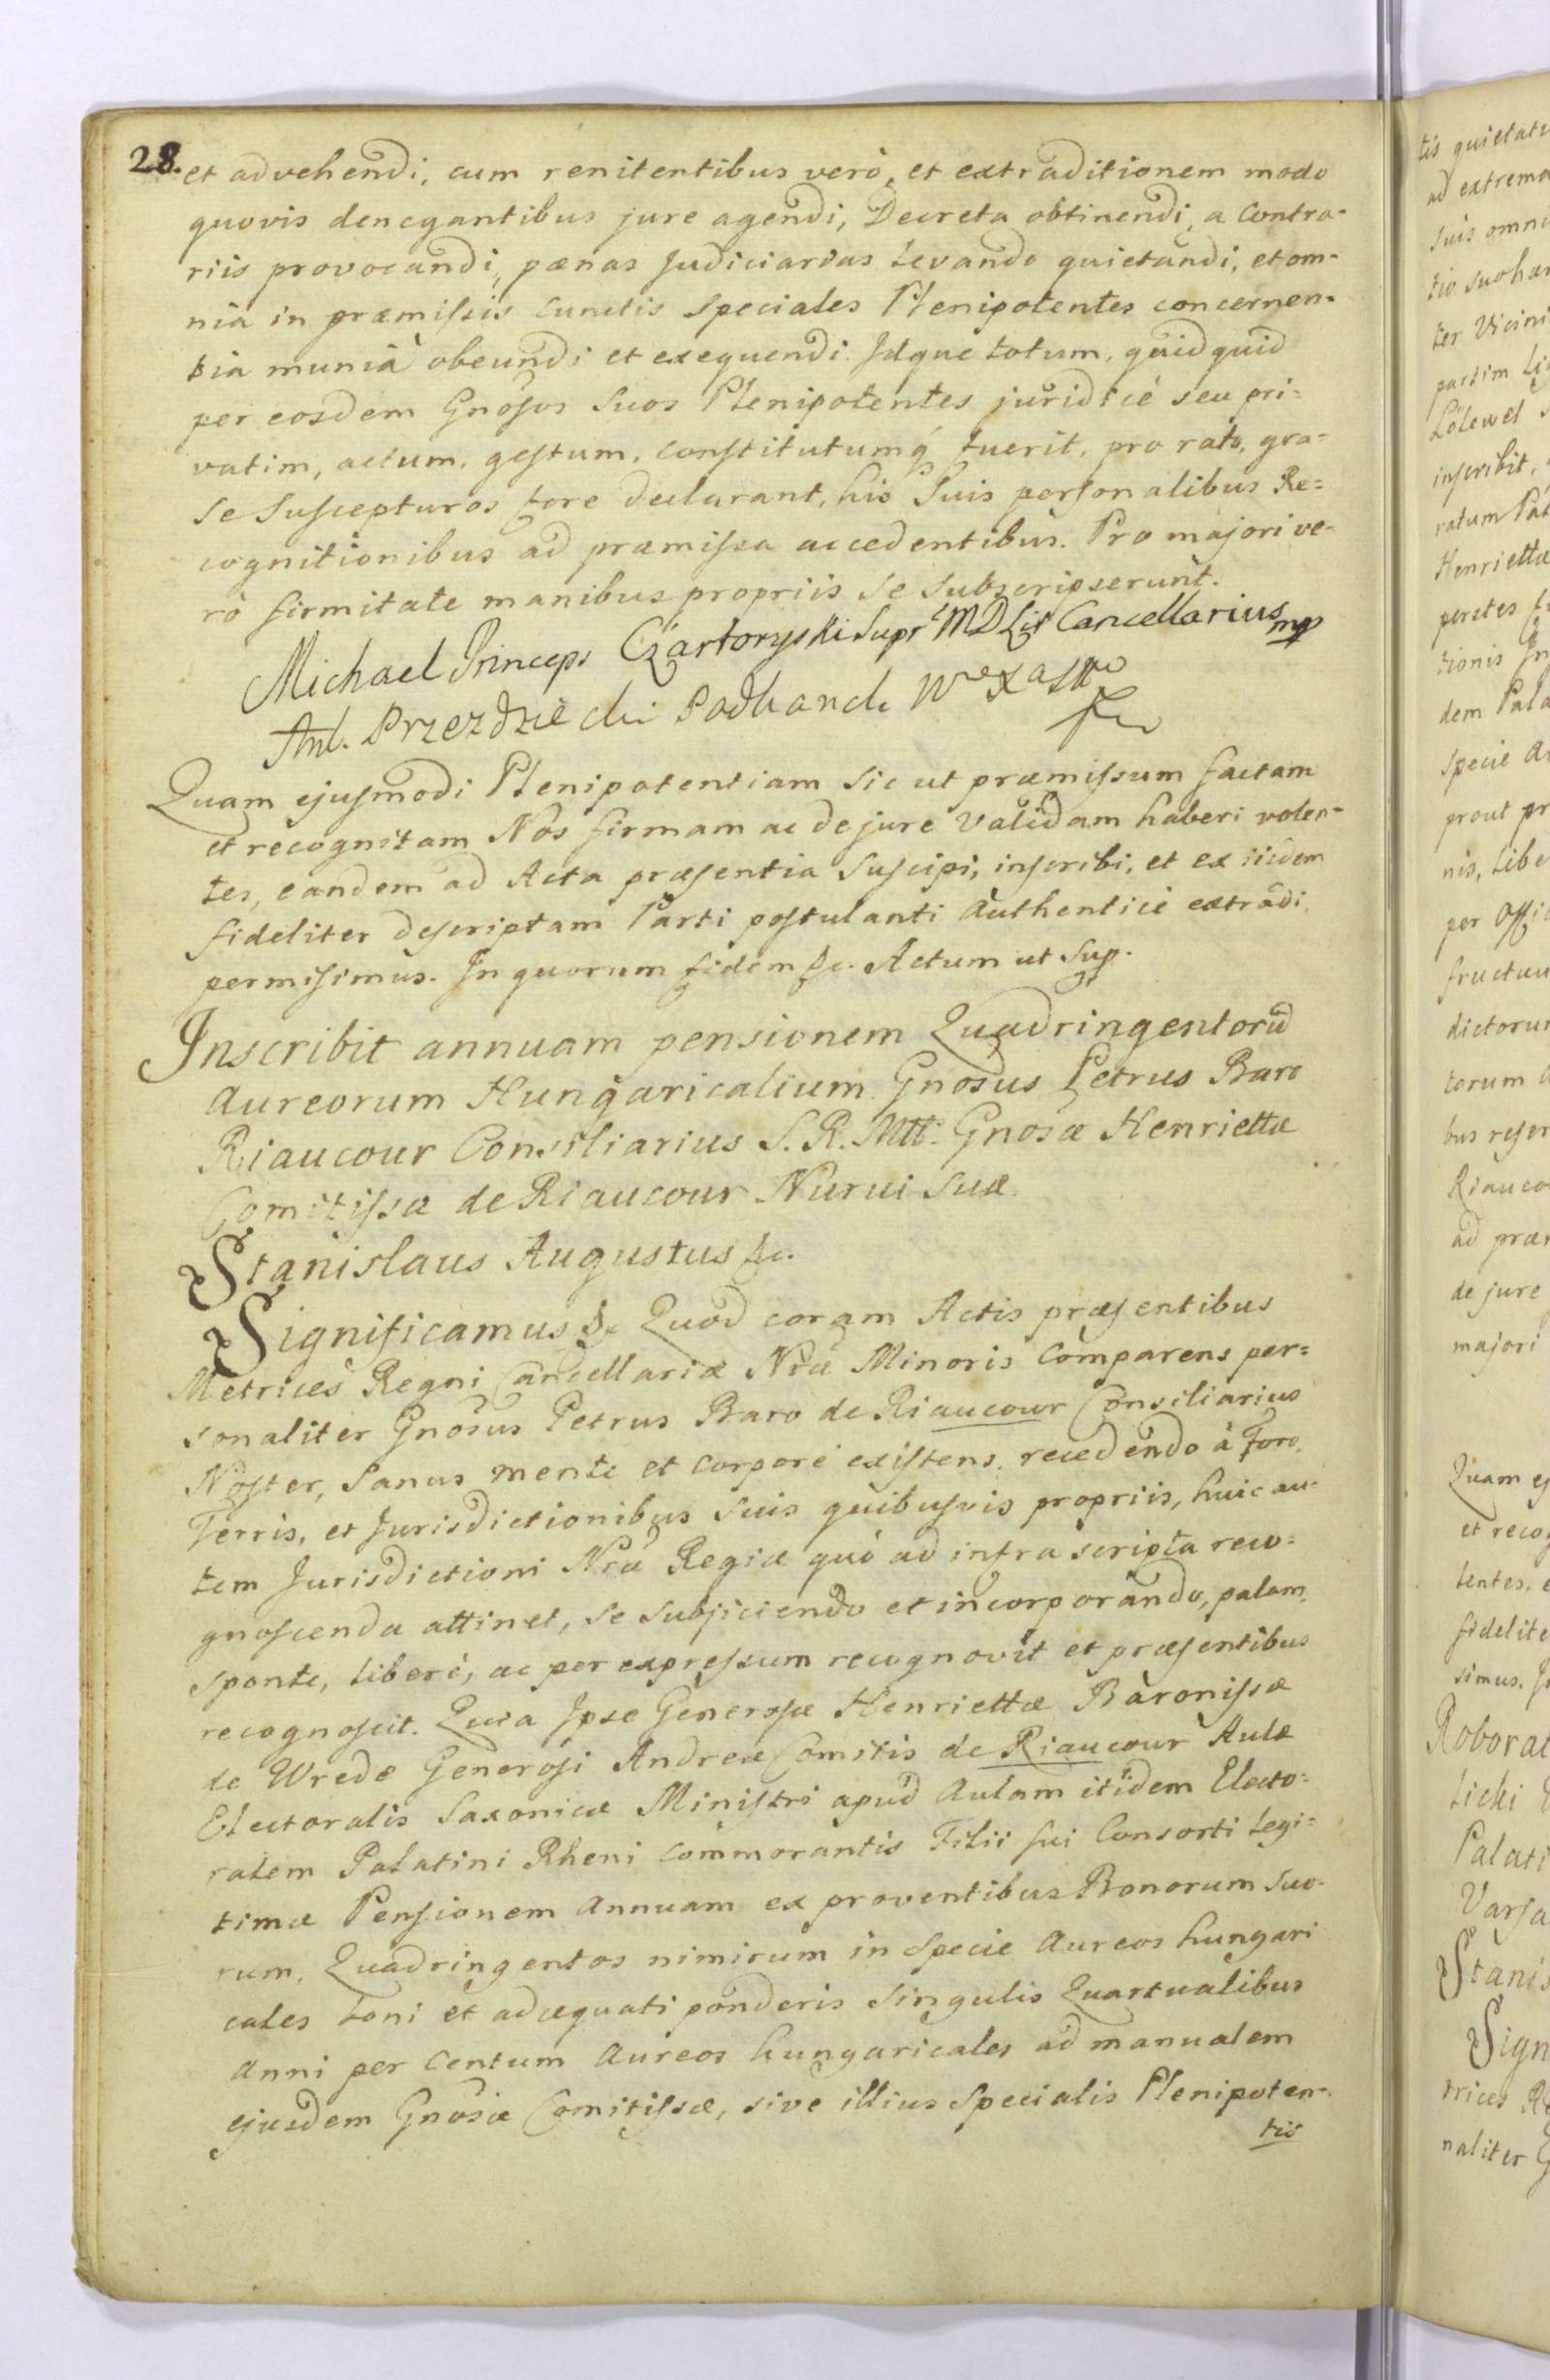 28.
et advehendi, cum renitentibus verò, et extraditionem modo
quovis denegantibus jure agendi, Decreta obtinendi, a contra-
riis provocandi, pænas Judiciarias levando quietandi, et om-
nia in præmissis cunctis speciales Plenipotentes concernen-
tia munia obeundi et exequendi. Idque totum, quidquid
per eosdem Gnosos Suos Plenipotentes juridicè seu pri-
vatim, actum, gestum, constitutumq́ fuerit, pro rato, gra-
se suscepturos fore declarant, his Suis personalibus Re=
cognitionibus ad præmissa accedentibus. Pro majori ve-
rò firmitate manibus propriis se subscripserunt.
Michael Princeps Czartoryski Supr MD Lit Cancellarius mp
Ant. Przezdziecki Podkancl.
Quam ejusmodi Plenipotentiam sic ut præmissum factam
et recognitam Nos firmam ac de jure validam haberi volen-
tes, eandem ad Acta præsentia suscipi, inscribi, et ex iisdem
fideliter descriptam Parti postulanti authenticè extradi
permisimus. In quorum fidem &c. Actum ut sup.
Inscribit annuam pensionem Quadringentorū
Aureorum Hungaricalium Gnosus Petrus Baro
Riaucour Consiliarius S. R. Mtt. Gnosæ Henriettæ
Comitissæ de Riaucour Nurui suæ.
Stanislaus Augustus &c.
Significamus &c Quod coram Actis præsentibus
Metrices Regni Cancellariæ Nræ Minoris comparens per=
sonaliter Gnosus Petrus Baro de Riaucour Consiliarius
Noster, sanus mente et corpore existens, recedendo à Foro,
Terris, et Jurisdictionibus suis quibusvis propriis, huic au-
tem Jurisdictioni Nræ Regiæ quò ad infra scripta reco=
gnoscenda attinet, se subjiciendo et incorporando, palam,
sponte, liberè, ac per expressum recognovit et præsentibus
recognoscit. Quia Ipse Generosæ Henriettæ Baronissæ
de Wrede Generosi Andreæ Comitis de Riaucour Aulæ
Electoralis Saxonicæ Ministri apud Aulam itidem Electo=
ralem Palatini Rheni commorantis Filii sui Consorti legi=
timæ Pensionem Annuam ex proventibus Bonorum suo-
rum, Quadringentos nimirum in specie Aureos hungari
cales boni et adæquati ponderis singulis Quartualibus
Anni per Centum Aureos hungaricales ad manualem
ejusdem Gnosæ Comitissæ, sive illius specialis Plenipoten-
tis
tis quietat
ad extrema
suis omni
ter Vicini
partim
Lölewel
inscribit,
ratum
Henriettæ
tionis
dem Pala
specie
prout
nis, libe
per Offic
fructuu
dictorum
torum
bus
Riauco
ad præ
de jure
majori
Quam
et reco
tentes,
fidelite
simus.
Roborat
licki
Palati
Varsa
Stanis
Sign
trices
naliter